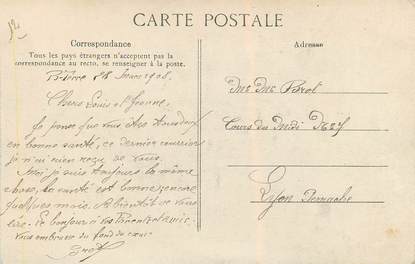 CARTE POSTALE
Correspondance
Tous les pays étrangers n'acceptent pas la
correspondance au recto, se renseigner à la poste.
28 Mars 1908.
Chers Louis et Jeanne.
Je pense que vous êtes toujours
en bonne santé, ce dernier courrier
je n'ai rien reçu de vous.
Moi je suis toujours la même
chose, la santé est bonne encore
quelques mois. A bientôt de vous
lire. Le bonjour à vos Parents et amis.
Vous embrasse du fond du cœur
Brot
Adresse
Brot
Cours du Midi
Lyon Perrache